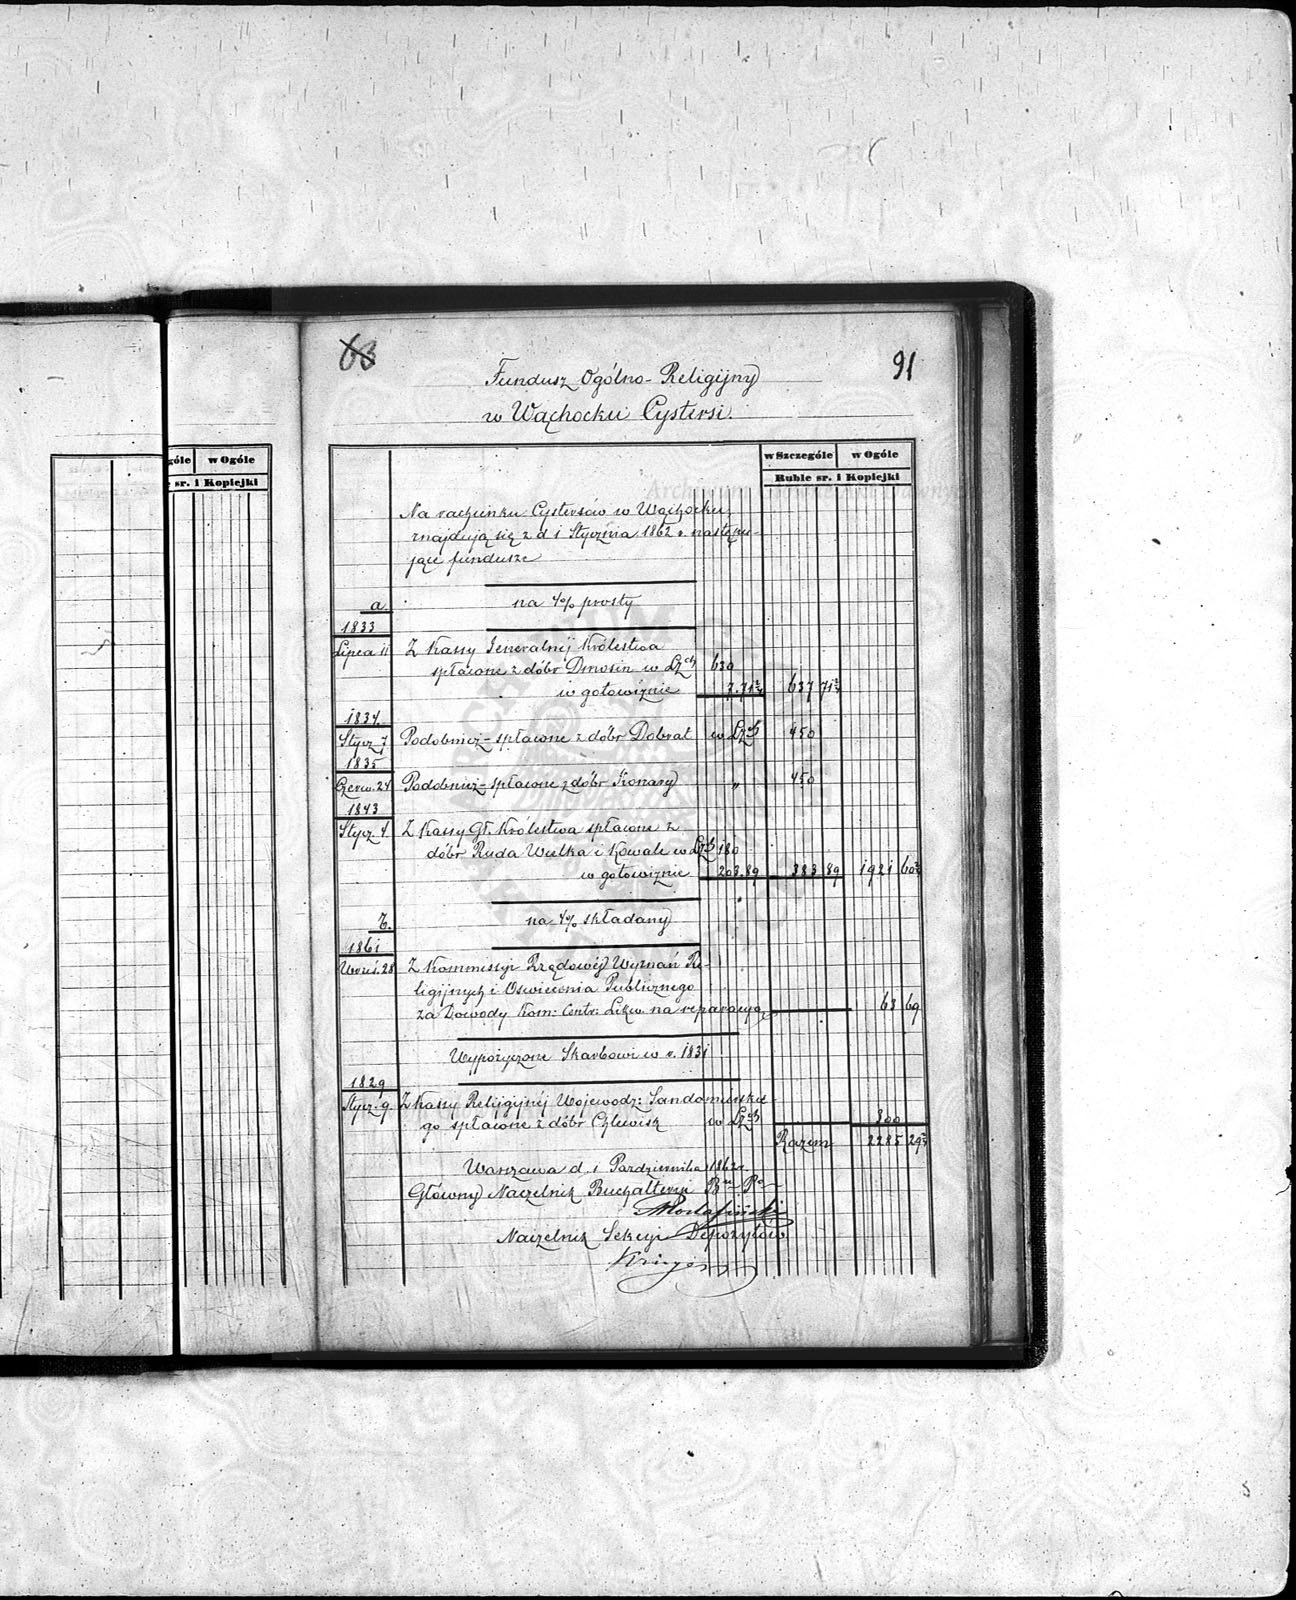 63
91
Fundusz Ogólno-Religijny
w Wąchocku Cystersi.
góle w Ogóle
sr. i Kopiejki
w Szczególe w Ogóle
Ruble sr. i Kopiejki
Na rachunku Cystersów w Wąchocku,
znajdują się z d 1 Stycznia 1862 r. następu-
jące fundusze
a. na 4% prosty
1833
Lipca 11 Z Kassy Jeneralnéj Królestwa
spłacone z dóbr Dmosin w Lzch 630
w gotowiznie 7.71¾ 637 71¾
1834.
Stycz. 7 Podobnież - spłacone z dóbr Dobrut w Lzch 450
1835
Czerw. 24 Podobnież - spłacone z dóbr Konary „ 450
1843
Stycz. 4. Z Kassy Gł. Królestwa spłacone z
dóbr Ruda Wielka i Kowale w Lzch 180
w gotowiznie 203.89 383 89 1921 60¾
b. na 4% składany
1861
Wrześ. 28 Z Kommissyi Rządowéj Wyznań Re-
ligijnych i Oswiecenia Publicznego
za Dowody Kom: Centr: Likw. na reparacyą 63 69
Wypożyczone Skarbowi w r. 1831
1829
Stycz. 9. Z Kassy Religijnéj Wojewodz: Sandomierskie-
go spłacone z dóbr Chlewisk w Lzch 300
Razem 2285 29¾
Warszawa d. 1 Pazdziernika 1862 r.
Główny Naczelnik Buchalteryi
Naczelnik Sekcyi Depozytów